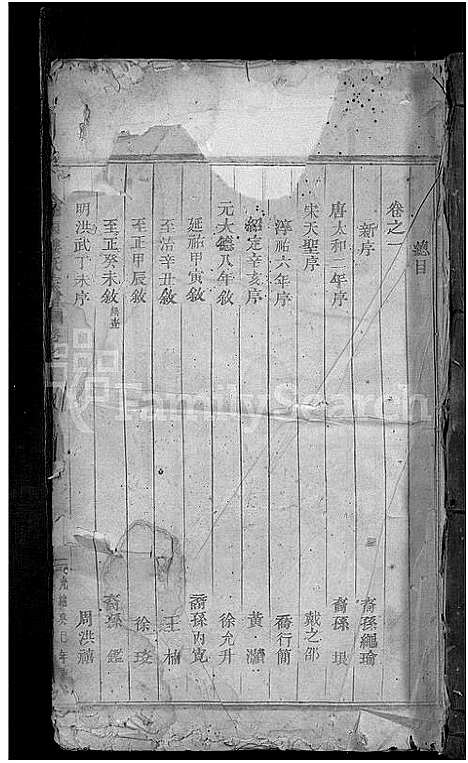 總目
卷之一
新序 裔孫繩瑜
唐太和二年序 裔孫 琅
宋天聖序 戴之邵
淳祐六年序 喬行簡
紹定辛亥序 黃 灝
元大德八年敘 徐允升
延祐甲寅敘 裔孫內寬
至治辛丑敘 王 楠
至正甲辰敘 徐 琰
至正癸未敘 裔孫 鑑
明洪武丁未序 周洪禧
光緒癸巳年
FamilySearch